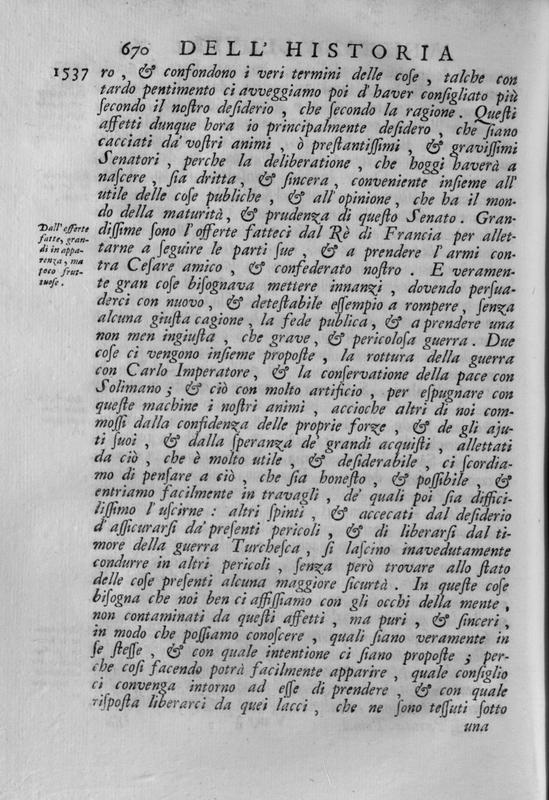 670 DELL' HISTORIA
1537 ro, & confondono i veri termini delle cose, talche con
tardo pentimento ci avveggiamo poi d'haver consigliato più
secondo il nostro desiderio, che secondo la ragione. Questi
affetti dunque hora io principalmente desidero, che siano
cacciati da' vostri animi, ò prestantissimi, & gravissimi
Senatori, perche la deliberatione, che hoggi haverà a
nascere, sia dritta, & sincera, conveniente insieme all'
utile delle cose publiche, & all'opinione, che ha il mon-
do della maturità, & prudenza di questo Senato. Gran-
dissime sono l'offerte fatteci dal Rè di Francia per allet-
tarne a seguire le parti sue, & a prendere l'armi con-
tra Cesare amico, & confederato nostro. E veramen-
te gran cose bisognava mettiere innanzi, dovendo persua-
derci con nuovo, & detestabile essempio a rompere, senza
alcuna giusta cagione, la fede publica, & a prendere una
non men ingiusta, che grave, & pericolosa guerra. Due
cose ci vengono insieme proposte, la rottura della guerra
con Carlo Imperatore, & la conservatione della pace con
Solimano; & ciò con molto artificio, per espugnar con
queste machine i nostri animi, accioche altri di noi com-
mossi dalla confidenza delle proprie forze, & de gli aju-
ti suoi, & dalla speranza de' grandi acquisti, allettati
da ciò, che è molto utile, & desiderabile, ci scordia-
mo di pensare a ciò, che sia honesto, & possibile, &
entriamo facilmente in travagli, de' quali poi sia diffici-
lissimo l'uscirne: altri spinti, & accecati dal desiderio
d'assicurarsi da' presenti pericoli, & di liberarsi dal ti-
more della guerra Turchesca, si lascino inavedutamente
condurre in altri pericoli, senza però trovare allo stato
delle cose presenti alcuna maggiore sicurtà. In queste cose
bisogna che noi ben ci affissiamo con gli occhi della mente,
non contaminati da questi affetti, ma puri, & sinceri,
in modo che possiamo conoscere, quali siano veramente in
se stesse, & con quale intentione ci siano proposte; per-
che così facendo potrà facilmente apparire, quale consiglio
ci convenga intorno ad esse di prendere, & con quale
risposta liberarci da quei lacci, che ne sono tessuti sotto
una
Dall'offerte
fatte, gran-
di in appa-
renza, ma
poco frut-
tuose.